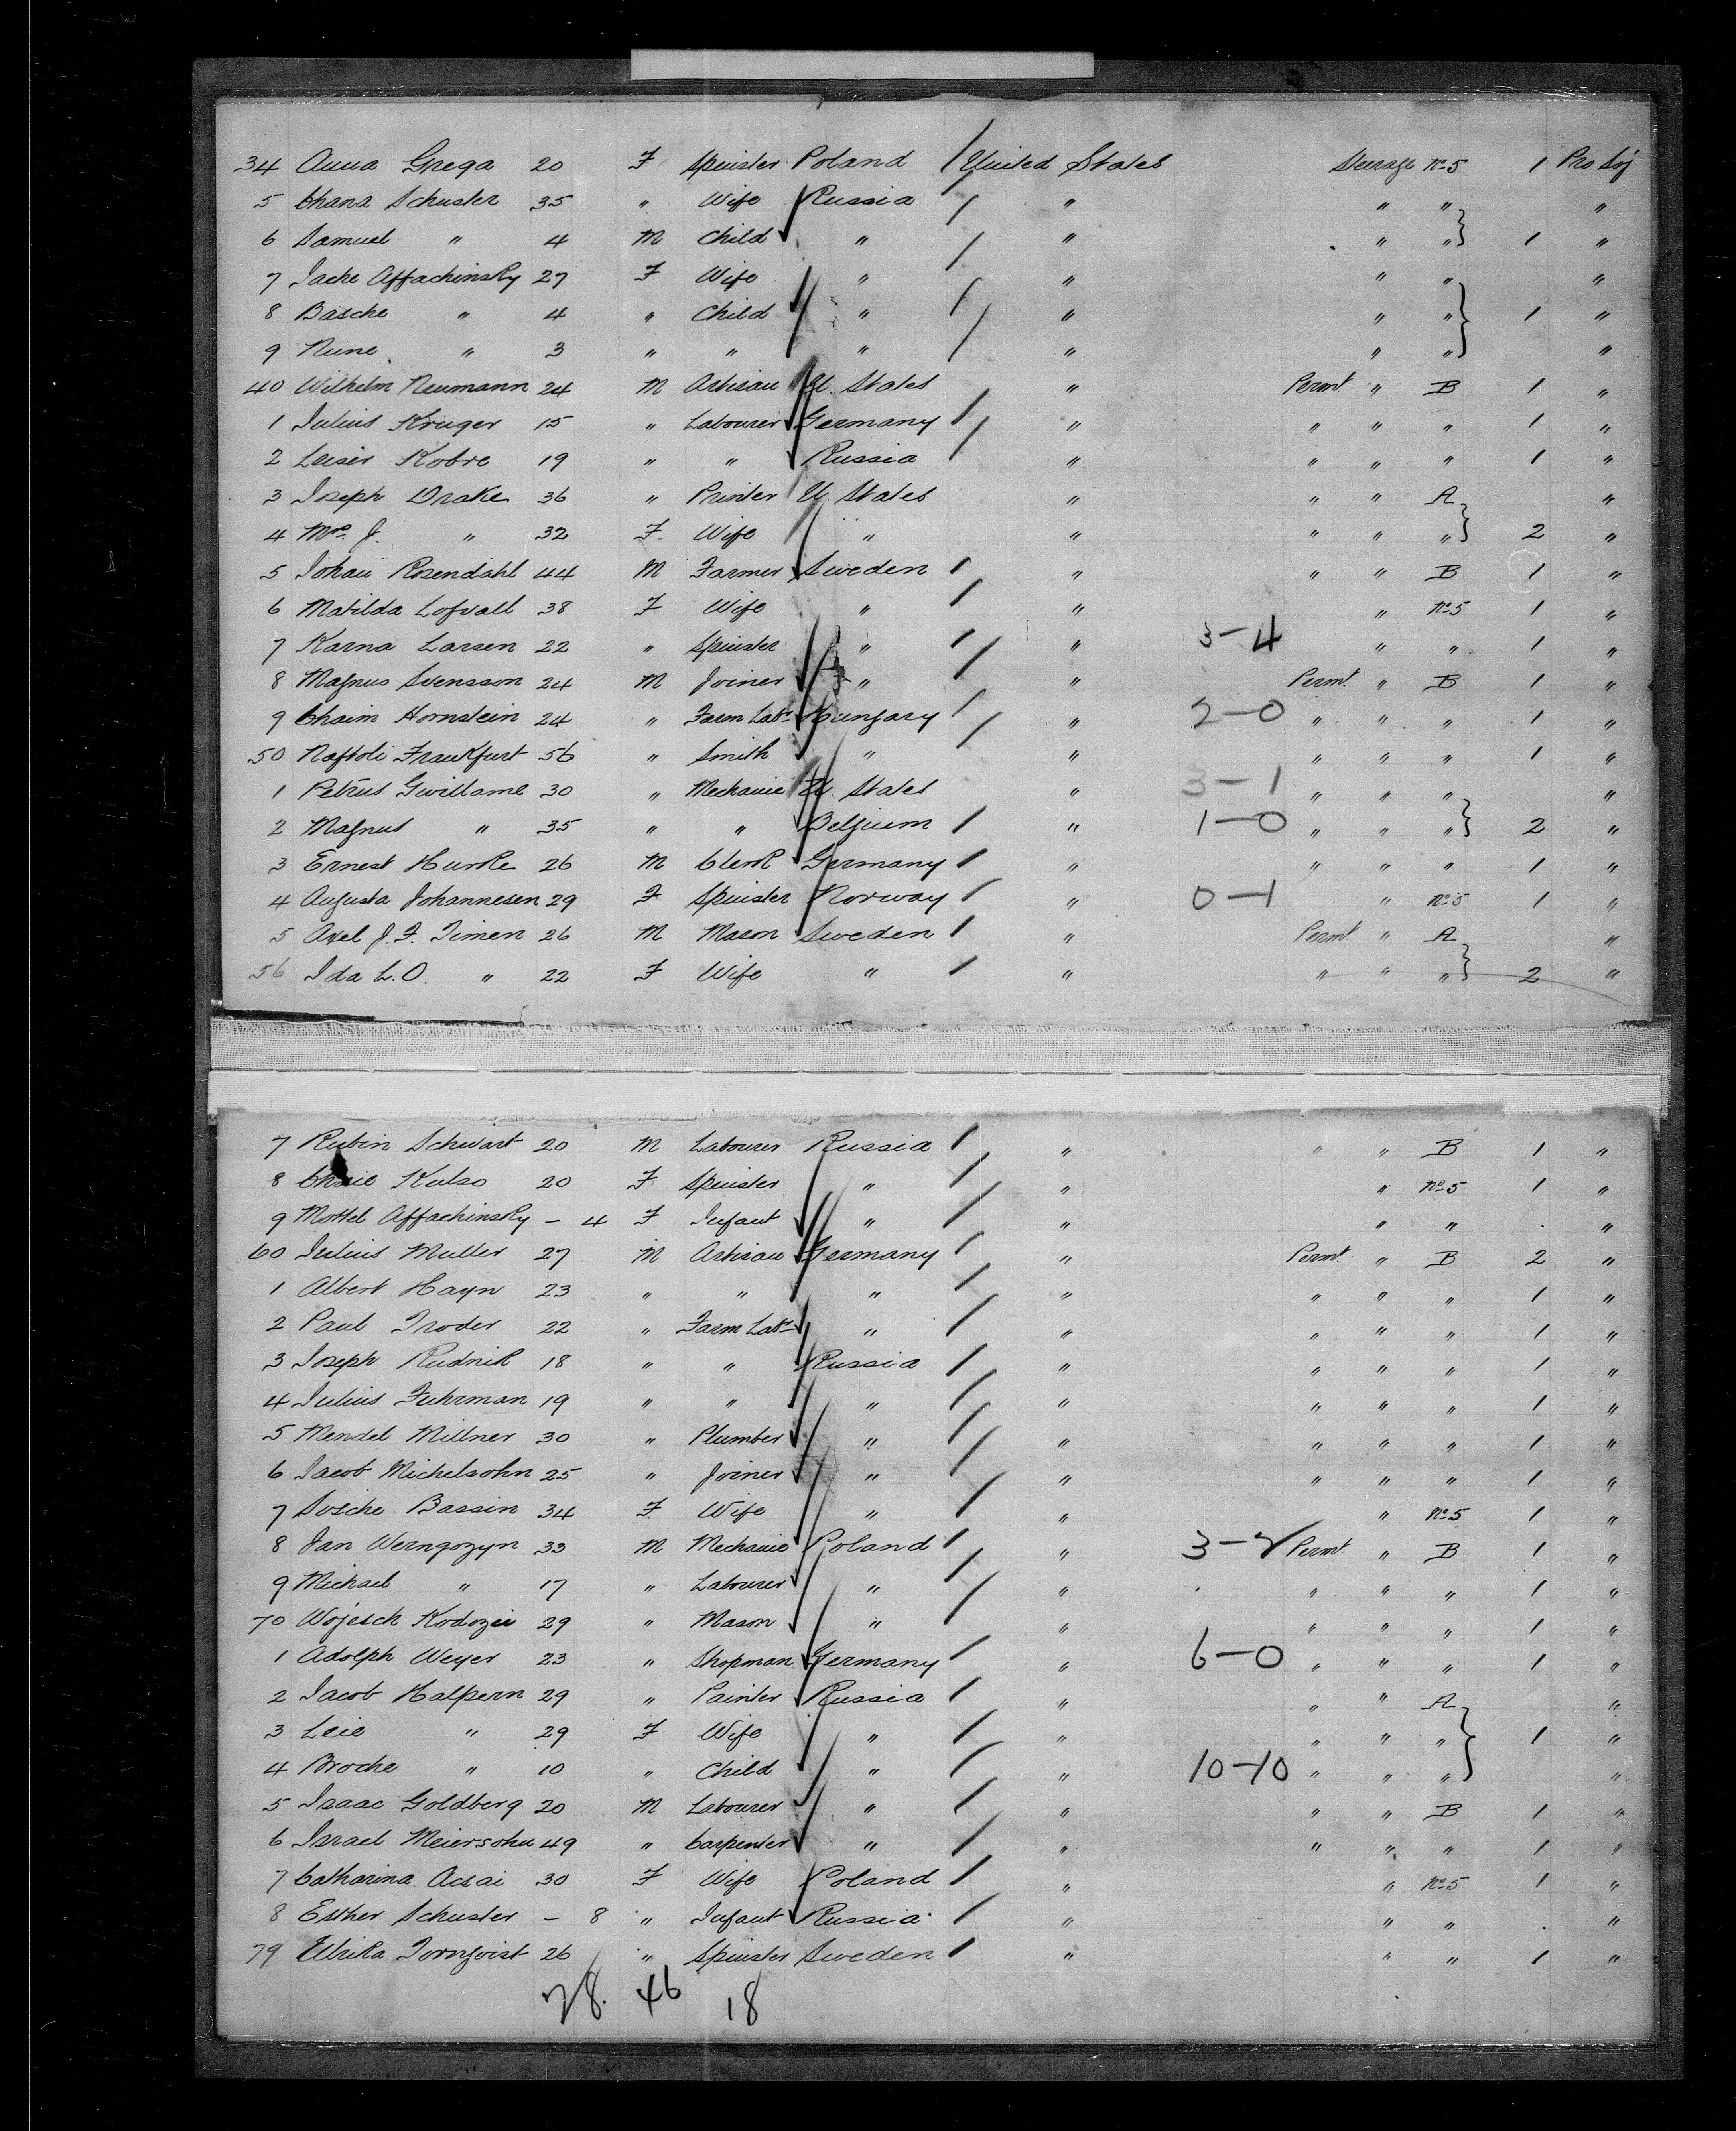 34 Anna Grega 20 F Spinster Poland / United States Steerage No 5 1 Pro Soj
5 Chana Schuster 35 " Wife Russia / " " " "
6 Samuel " 4 M Child " / " " " 1 "
7 Jache Affachinsky 27 F Wife " " " " "
8 Basche " 4 " Child " / " " " 1 "
9 Nune " 3 " " " / " " " "
40 Wilhelm Neumann 24 M Artisan U. States " Permt " B 1 "
1 Julius Kruger 15 " Labourer Germany / " " " " 1 "
2 Leiser Kobre 19 " " Russia / " " " " 1 "
3 Joseph Drake 36 " Printer U. States " " " A "
4 Mrs J. " 32 F Wife " " " " " 2 "
5 Johan Rosendahl 44 M Farmer Sweden / " " " B 1 "
6 Matilda Lofvall 38 F Wife " / " " No 5 1 "
7 Karna Larsen 22 " Spinster " / " 3-4 " " 1 "
8 Magnus Svensson 24 M Joiner " / " Permt. " B 1 "
9 Chaim Hornstein 24 " Farm Labr Hungary / " 2-0 " " " 1 "
50 Naftoli Frankfurt 56 " Smith " / " " " " 1 "
1 Petrus Gwillame 30 " Mechanic U. States " 3-1 " " " "
2 Magnus " 35 " " Belgium / " 1-0 " " " 2 "
3 Ernest Hunke 26 M Clerk Germany / " " " " 1 "
4 Augusta Johannesen 29 F Spinster Norway / " 0-1 " No 5 1 "
5 Axel J. F. Timen 26 M Mason Sweden / " Permt " A "
56 Ida L.O. " 22 F Wife " / " " " " 2 "
7 Rubin Schwart 20 M Labourer Russia / " " " B 1 "
8 Chaie Kulso 20 F Spinster " / " " No 5 1 "
9 Mottel Affachinsky - 4 F Infant " / " " " . "
60 Julius Muller 27 M Artisan Germany / " Permt. " B 2 "
1 Albert Hayn 23 " " " / " " " " 1 "
2 Paul Troder 22 " Farm Labr " / " " " " 1 "
3 Joseph Rudnik 18 " " Russia / " " " " 1 "
4 Julius Fuhrman 19 " " " / " " " " 1 "
5 Mendel Millner 30 " Plumber " / " " " " 1 "
6 Jacob Michelsohn 25 " Joiner " / " " " " 1 "
7 Sosche Bassin 34 F Wife " / " " No 5 1 "
8 Jan Werngozyn 33 M Mechanic Poland / " 3-2 Permt. " B 1 "
9 Michael " 17 " Labourer " / " " " " 1 "
70 Wojesch Kodozie 29 " Mason " / " " " " 1 "
1 Adolph Weyer 23 " Shopman Germany / " 6-0 " " " 1 "
2 Jacob Halpern 29 " Painter Russia / " " " A "
3 Leie " 29 F Wife " / " " " " 1 "
4 Broche " 10 " Child " / " 10-10 " " " "
5 Isaac Goldberg 20 M Labourer " / " " " B 1 "
6 Israel Meiersohn 49 " Carpenter " / " " " " 1 "
7 Catharina Acsai 30 F Wife Poland / " " No 5 1 "
8 Esther Schuster - 8 " Infant Russia / " " " . "
79 Ulrika Tornqvist 26 " Spinster Sweden / " " " 1 "
28. 46 18